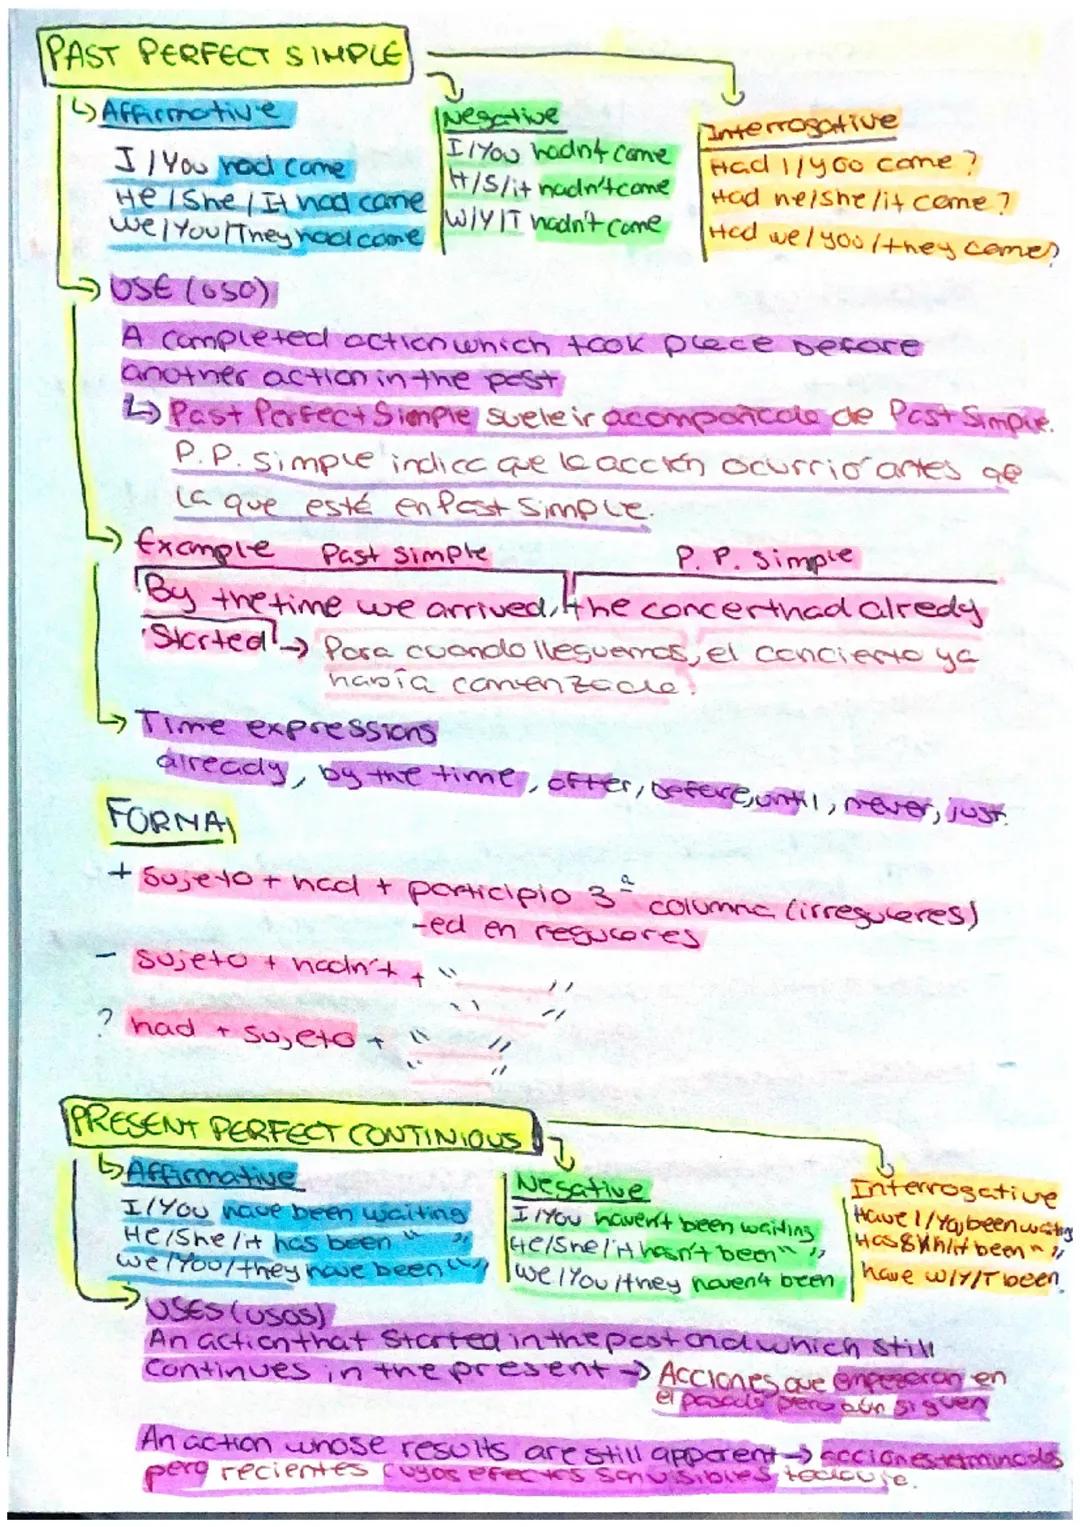 PAST PERFECT SIMPLE
Affirmative
I / You had come
He / She / It had come
We / You / They had come
Negative
I / You hadn't come
H/S/it hadn't come
W/Y/T hadn't come
Interrogative
Had I / you come?
Had he/she/it come?
Had we / you / they come?
USE (uso)
A completed action which took place before
another action in the past
Past Perfect Simple suele ir acompañado de Past Simple.
P.P. simple indica que la acción ocurrió antes de
la que esté en Past Simple.
Example Past simple P. P. Simple
By the time we arrived, the concert had alredy
Started → Para cuando lleguemos, el concierto ya
había comenzado.
Time expressions
already, by the time, after, before, until, never, just.
FORMA
+ Sujeto + had + participio 3ª columna (irregulares)
-ed en regulares
- sujeto + hadn't + " "
" "
? had + sujeto + " "
" "
PRESENT PERFECT CONTINIOUS
Affirmative
I / You have been waiting
He / She / it has been " "
We / You / they have been " "
Negative
I / You haven't been waiting
He / She / it hasn't been " "
We / You / they haven't been
Interrogative
Have I / You been waiting
Has S/h/it been " "
have W/Y/T been
USES (usos)
An action that started in the past and which still
continues in the present → Acciones que empezaron en
el pasado pero aún siguen
An action whose results are still apparent → acciones terminadas
pero recientes cuyos efectos son visibles todavíe.